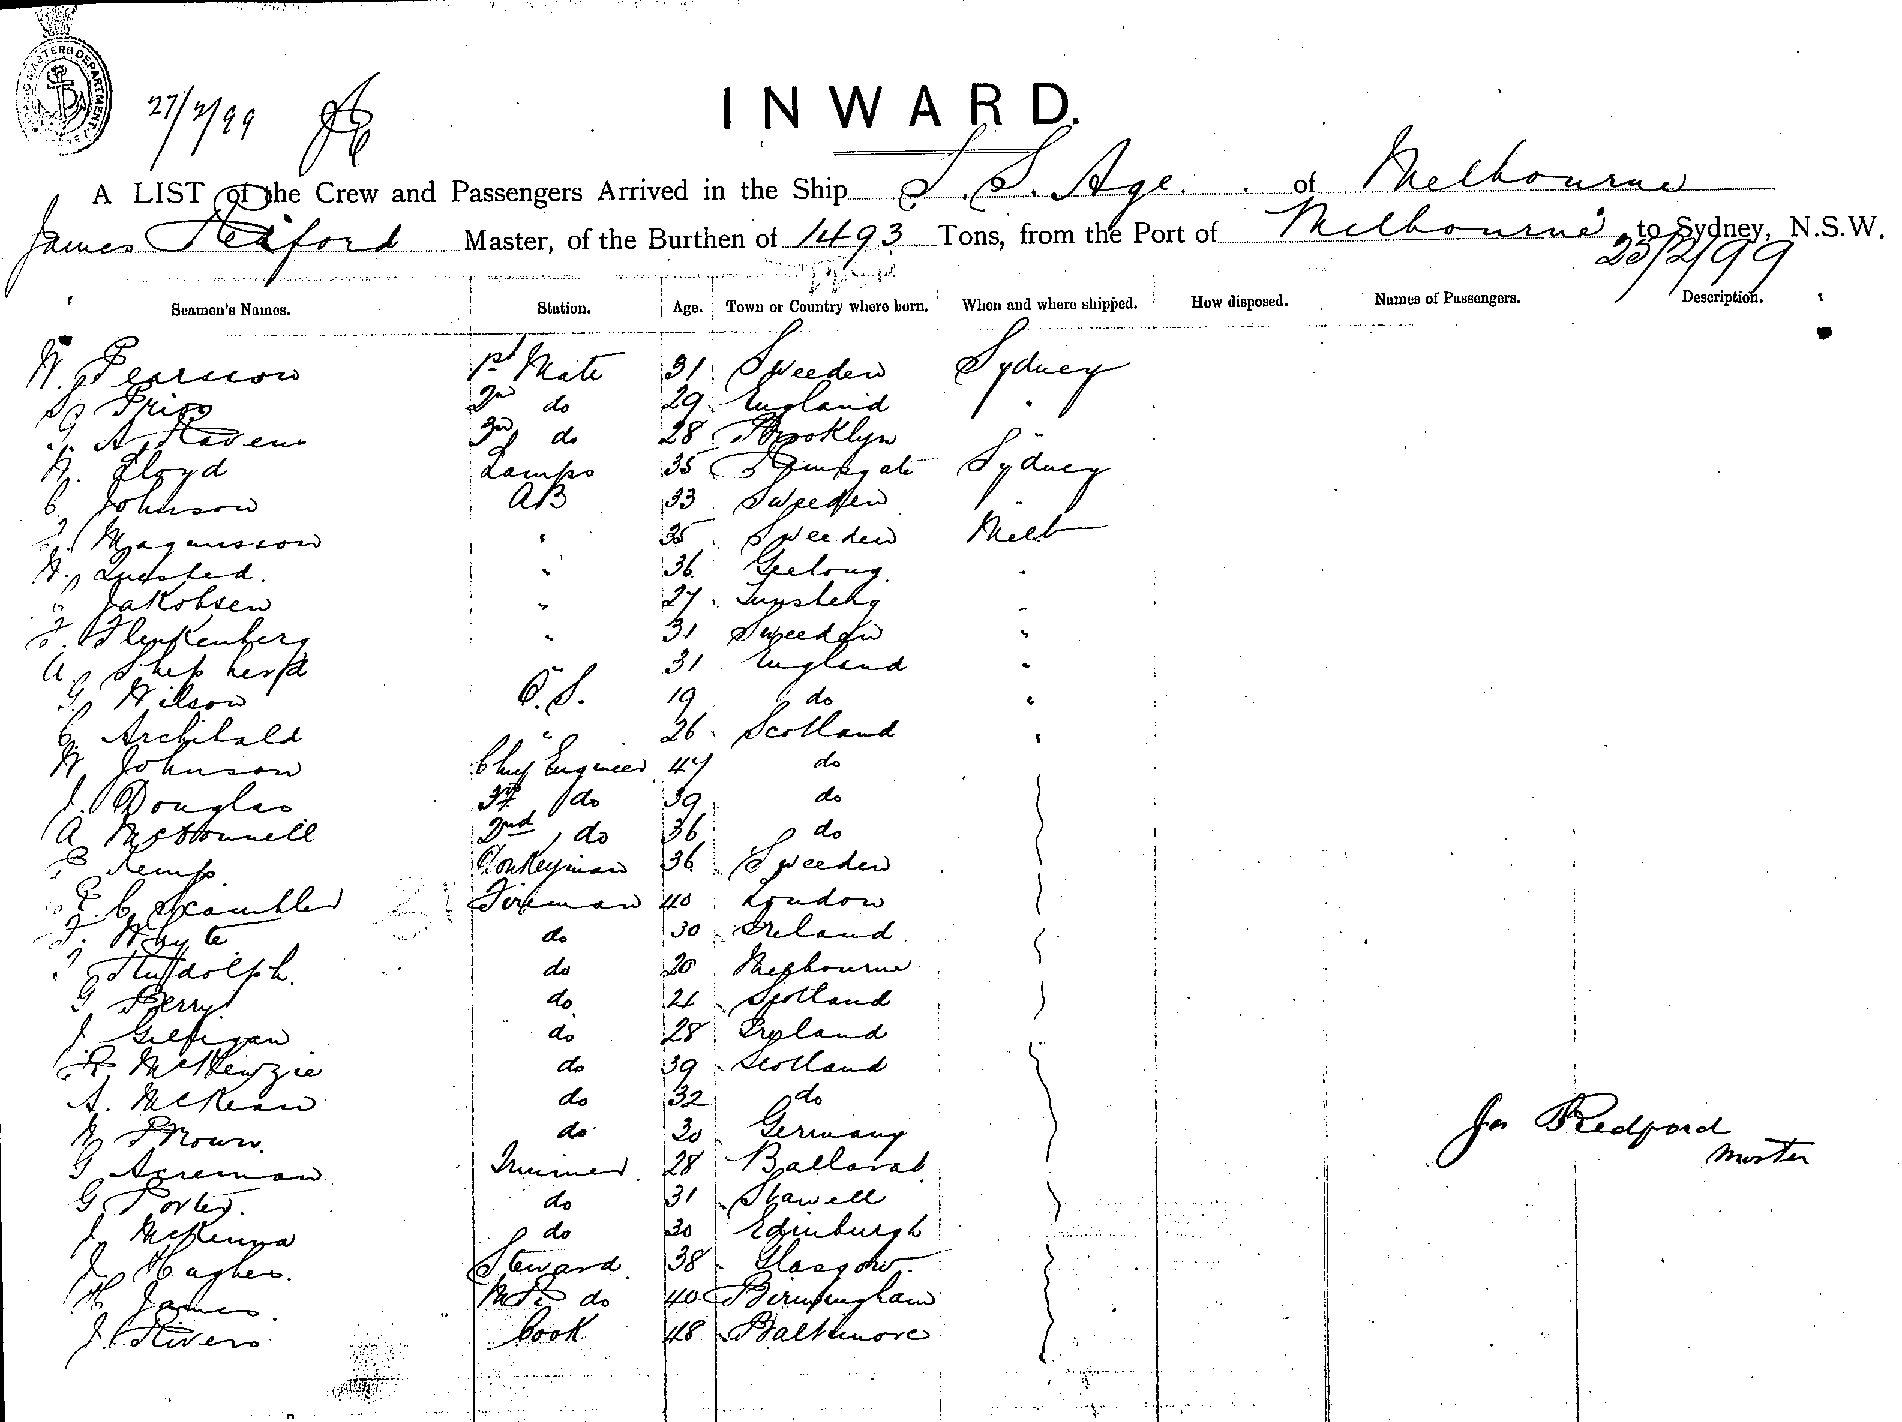 27/2/99
INWARD.
A LIST of the Crew and Passengers Arrived in the Ship S. S. Age. of Melbourne
James Redford Master, of the Burthen of 1493 Tons, from the Port of Melbourne to Sydney, N.S.W.
23/2/99
Seamen's Names. Station. Age. Town or Country where born. When and where shipped. How disposed. Names of Passengers. Description.
N. Pearsson 1st Mate 31 Sweeden Sydney
2nd do 29 England "
3rd do 28 Brooklyn "
N. Lloyd Lamps 35 Ramsgate Sydney
C. Johnson AB 33 Sweeden "
Magnusson " 35 Sweeden Melb
Quested. " 36 Geelong. "
Jakobsen " 27 Tunsberg "
F. Flenkenberg " 31 Sweeden "
A Shepherd " 31 England "
G. Wilson O.S. 19 do "
C Archibald " 26 Scotland "
W Johnson Chief Engineer 47 do
J. Douglas do 39 do
A McDonnell 2nd do 36 do
Kemp Donkeyman 36 Sweeden
C. Scambler Fireman 40 London
F. Whyte do 30 Ireland
Rudolph. do 20 Melbourne
G Berry do 21 Scotland
J. Gilligan do 28 Ireland
McKenzie do 39 Scotland
A. McKean do 32 do
Brown. do 30 Germany
G Acreman Trimmer 28 Ballarat
G Porter. do 31 Stawell
J. McKenna do 30 Edinburgh
J Hughes. Steward 38 Glasgow.
H James. do 40 Birmingham
J. Rivers Cook 48 Baltimore
Jas Redford
Master